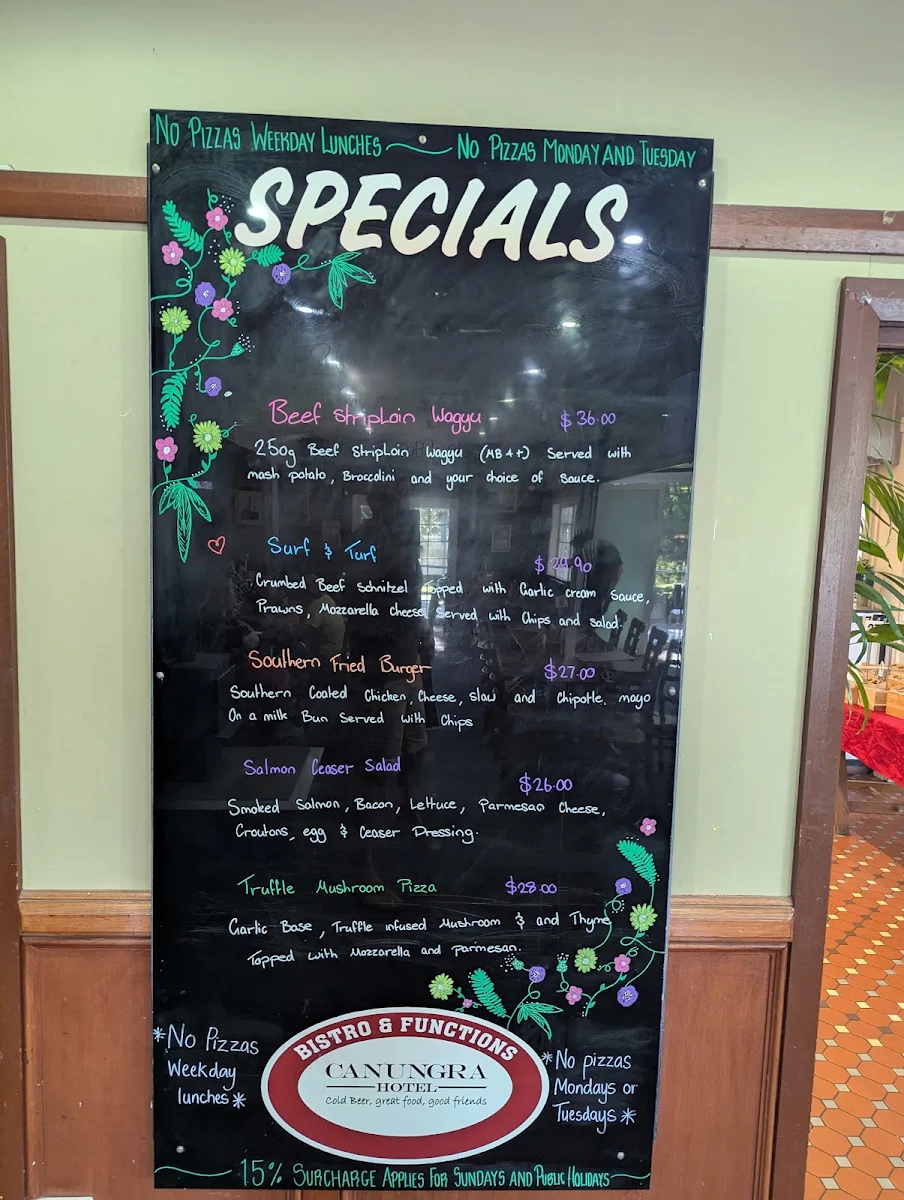 No Pizzas Weekday Lunches No Pizzas Monday and Tuesday
SPECIALS
Beef StripLoin Wagyu $36.00
250g Beef StripLoin Wagyu (MB 4+) Served with
mash potato, Broccolini and your choice of Sauce.
Surf & Turf $29.90
Crumbed Beef Schnitzel topped with Garlic cream Sauce,
Prawns, Mozzarella Cheese, Served with Chips and salad.
Southern Fried Burger $27.00
Southern Coated Chicken, Cheese, slaw and Chipotle. mayo
On a milk Bun Served with Chips
Salmon Ceaser Salad $26.00
Smoked Salmon, Bacon, Lettuce, Parmesan Cheese,
Croutons, egg & Ceaser Dressing.
Truffle Mushroom Pizza $28.00
Garlic Base, Truffle infused Mushroom & and Thyme
Topped with Mozzarella and Parmesan.
*No Pizzas
Weekday
lunches*
BISTRO & FUNCTIONS
CANUNGRA
HOTEL
Cold Beer, great food, good friends
*No pizzas
Mondays or
Tuesdays*
15% Surcharge Applies For Sundays and Public Holidays